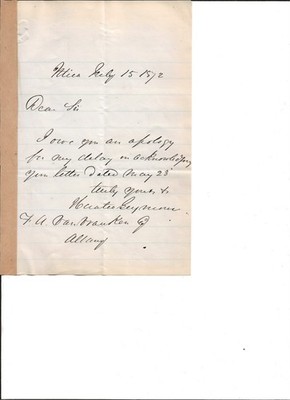 Utica July 15 1872
Dear Sir
I owe you an apology
for my delay in acknowledging
your letter dated May 23
truly yours &
Horatio Seymour
F. A. Van Vranken
Albany